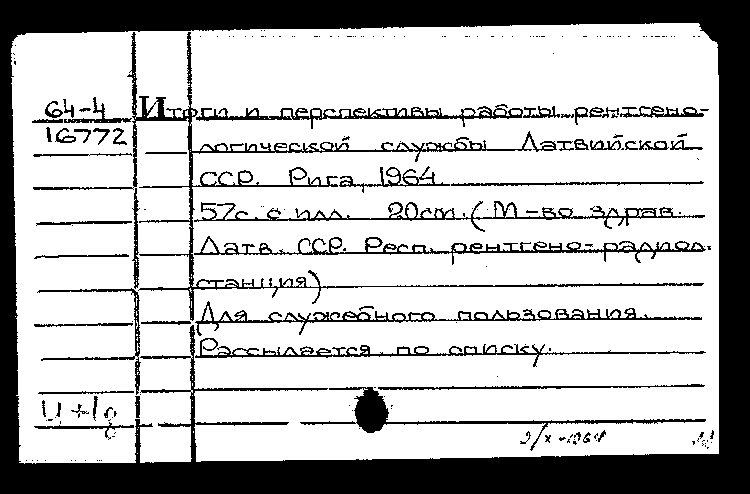 64-4 Итоги и перспективы работы рентгено-
16772 логической службы Латвийской
ССР. Рига, 1964.
57с. с илл. 20см. (М-во здрав.
Латв. ССР. Респ. рентгено-радиол.
станция)
Для служебного пользования.
Рассылается по списку.